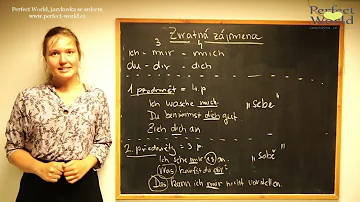 Perfect World, jazykovka se srdcem
www.perfect-world.cz
Perfect World
Zvratná zájmena
3. 4
ich - mir - mich
du - dir - dich
1 předmět = 4.p.
Ich wasche mich.
Du benimmst dich gut.
Zieh dich an
"sebe"
2. předměty = 3.p.
Ich sehe mir es an.
Was kaufst du dir?
Das kann ich mir nicht vorstellen.
"sobě"